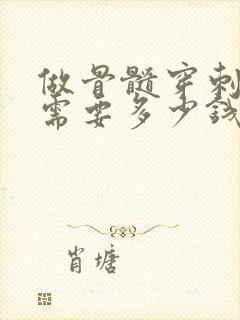 做骨髓穿刺
需要多少钱
肖塘